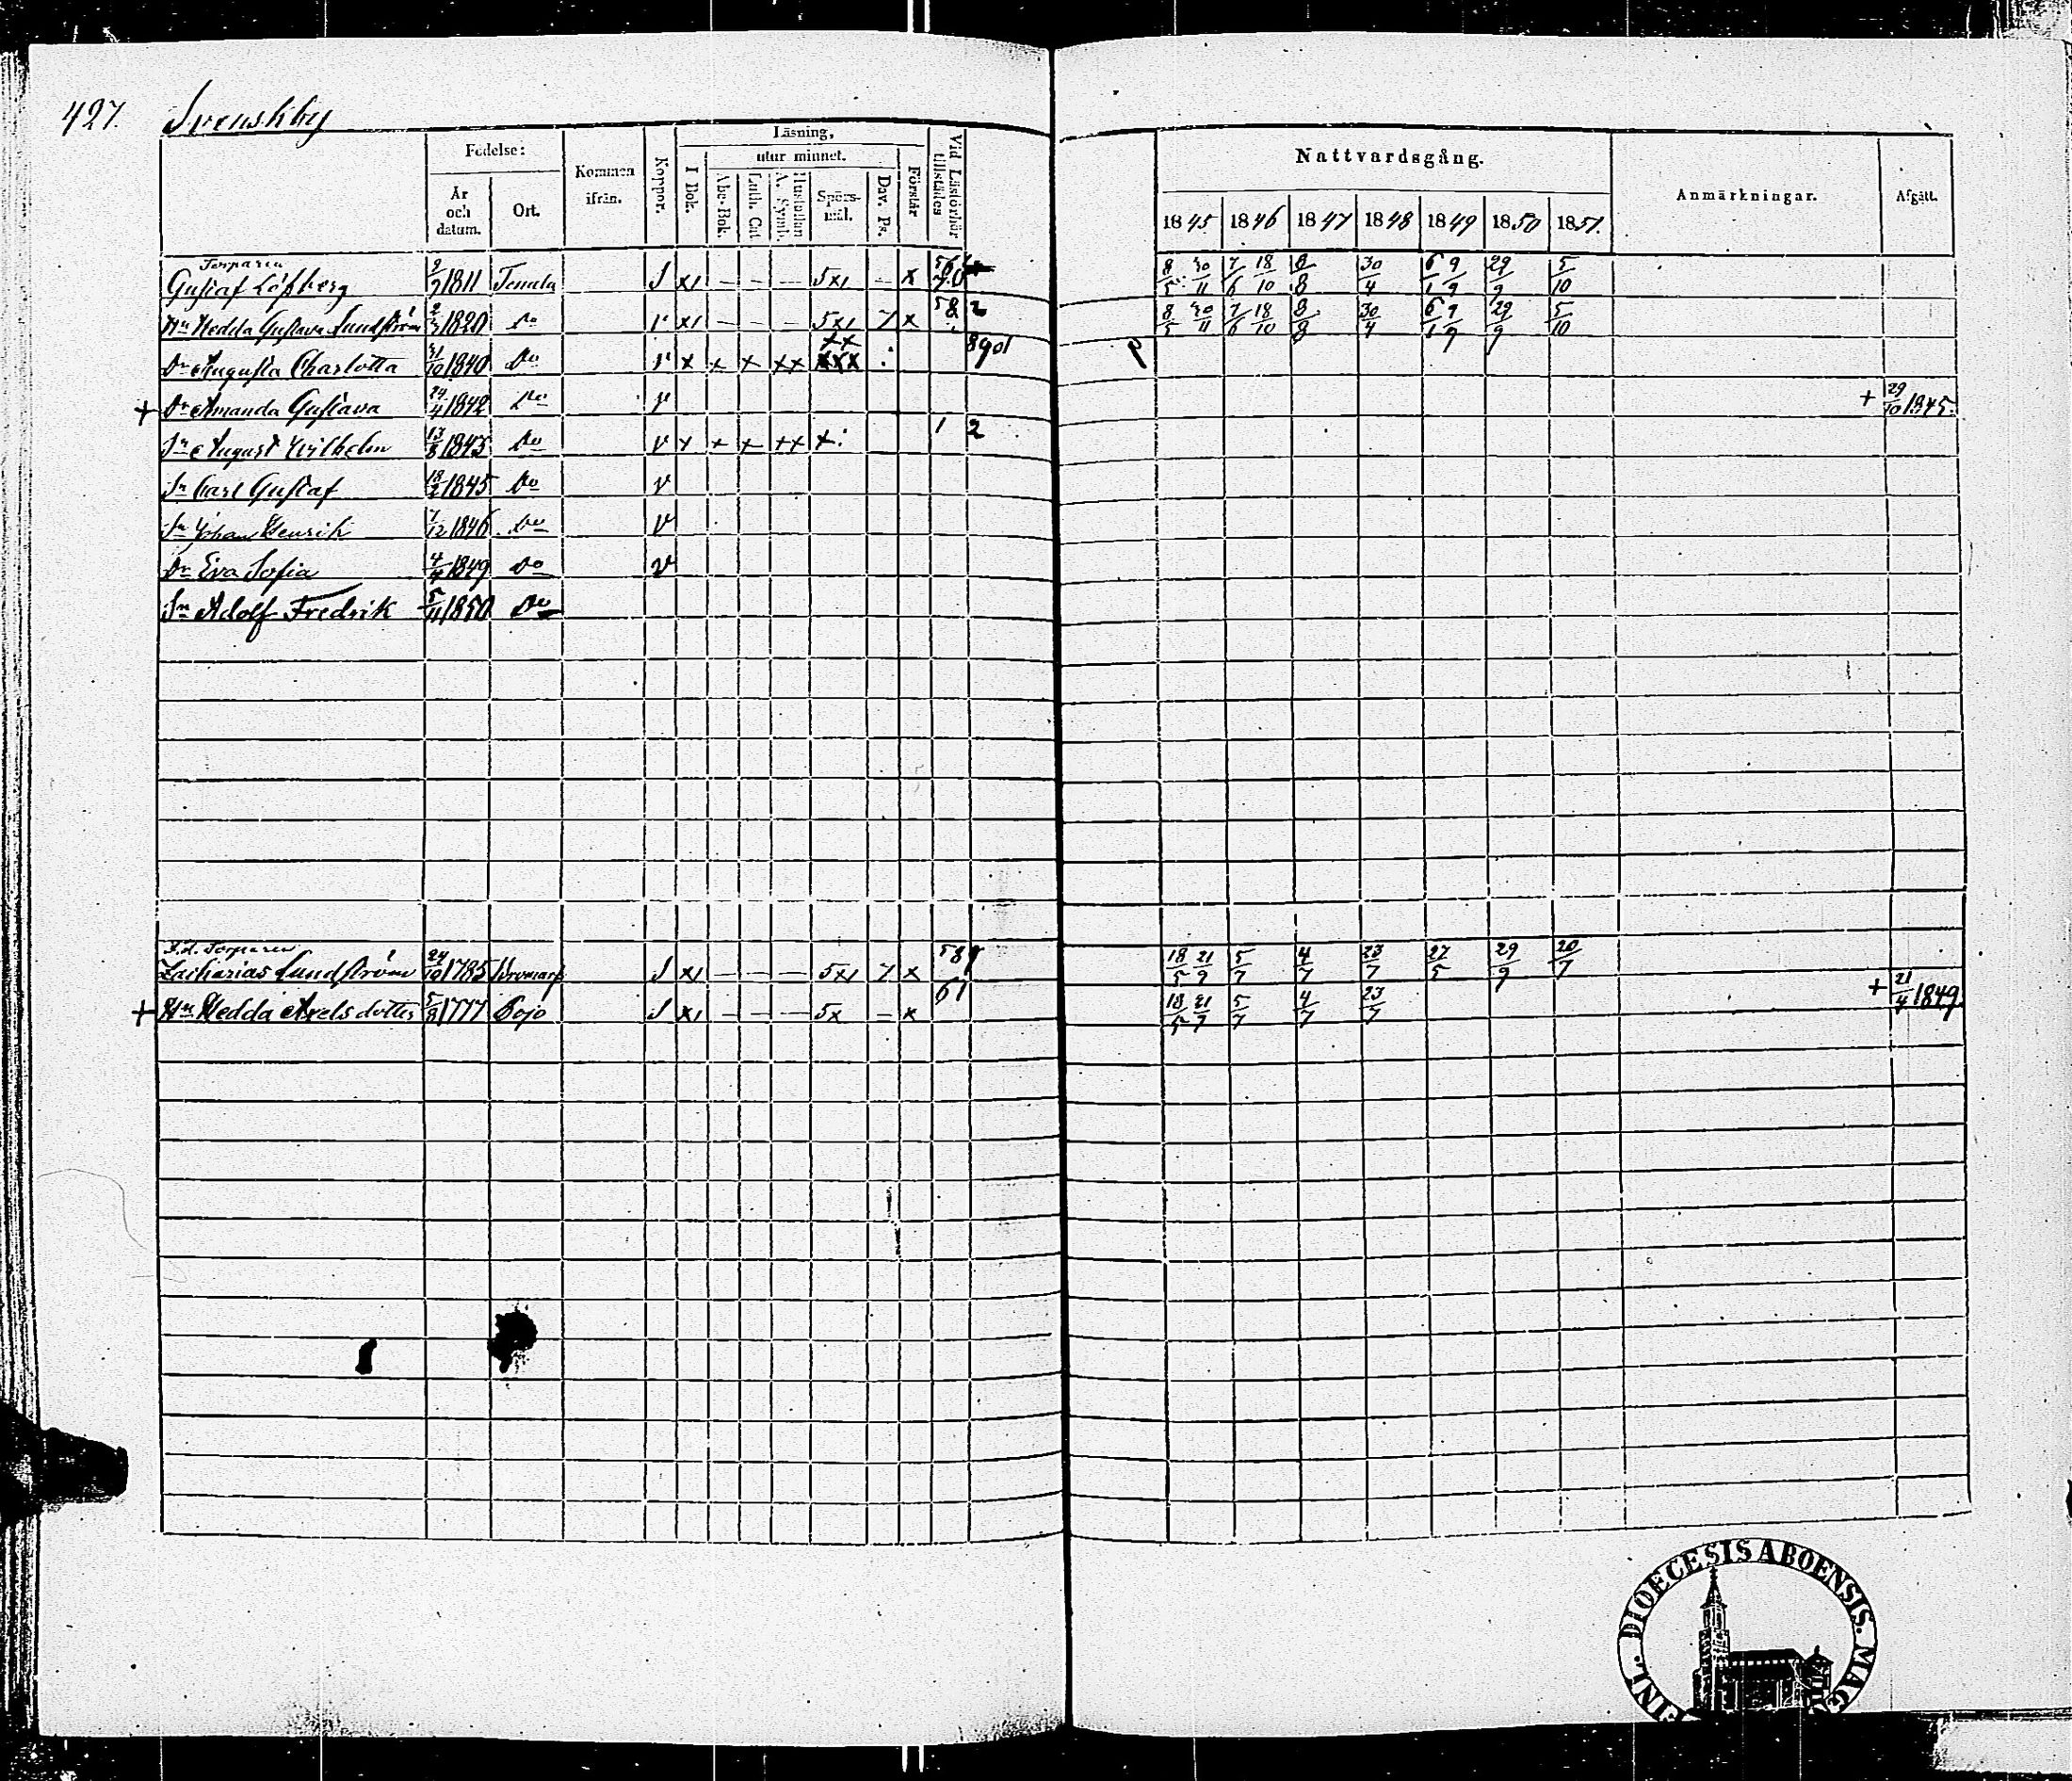 427. Svenskby
Födelse:
År och datum.
Ort.
Kommen ifrån.
Koppor.
Läsning,
I Bok.
utur minnet.
Abc-Bok.
Luth. Cat
Hustaflan A. Symb.
Spörsmål.
Dav. Ps.
Förstår
Vid Läsförhör tillstädes
Nattvardsgång.
1845 1846 1847 1848 1849 1850 1851.
Anmärkningar.
Afgått.
Torparen
Gustaf Löfberg 1811 Tenala S x1 – – – 5x1 – x 8/5 30/11 7/6 18/10 8/8 30/4 6/1 9/9 29/9 5/10
Hu Hedda Gustava Sundström 1820 Do v x1 – – – 5x1 7 x 58 2 8/5 30/11 7/6 18/10 8/8 30/4 6/1 9/9 29/9 5/10
Dr Augusta Charlotta 31/10 1840 Do v x x x xx xxx 8901
+ Dr Amanda Gustava 24/4 1842 Do v + 29/10 1845.
Sn August Wilhelm 13/8 1843 Do v x x x xx x: 1 2
Sn Carl Gustaf 18/2 1845 Do v
Sn Johan Henrik 7/12 1846 Do v
Dr Eva Sofia 4/4 1849 Do v
Sn Adolf Fredrik 5/11 1850 Do
F.d. Torparen
Zacharias Sundström 24/10 1785 Bromarf S x1 – – – 5x1 7 x 589 18/5 21/9 5/7 4/7 23/7 27/5 29/9 20/7
+ Hu Hedda Axelsdotter 5/8 1777 Pojo S x1 – – – 5x – x 61 18/5 21/9 5/7 4/7 23/7 + 21/4 1849.
DIOECESIS ABOENSIS. MAG
FINL.